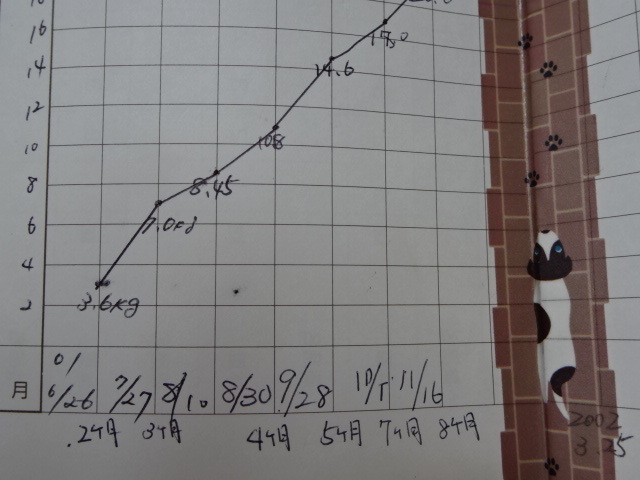 16
14
12
10
8
6
4
2
17.0
14.6
10.8
8.45
7.0kg
3.6kg
01
月 6/26 7/27 8/10 8/30 9/28 10/1 11/16
2ヶ月 3ヶ月 4ヶ月 5ヶ月 7ヶ月 8ヶ月
2002
3.25